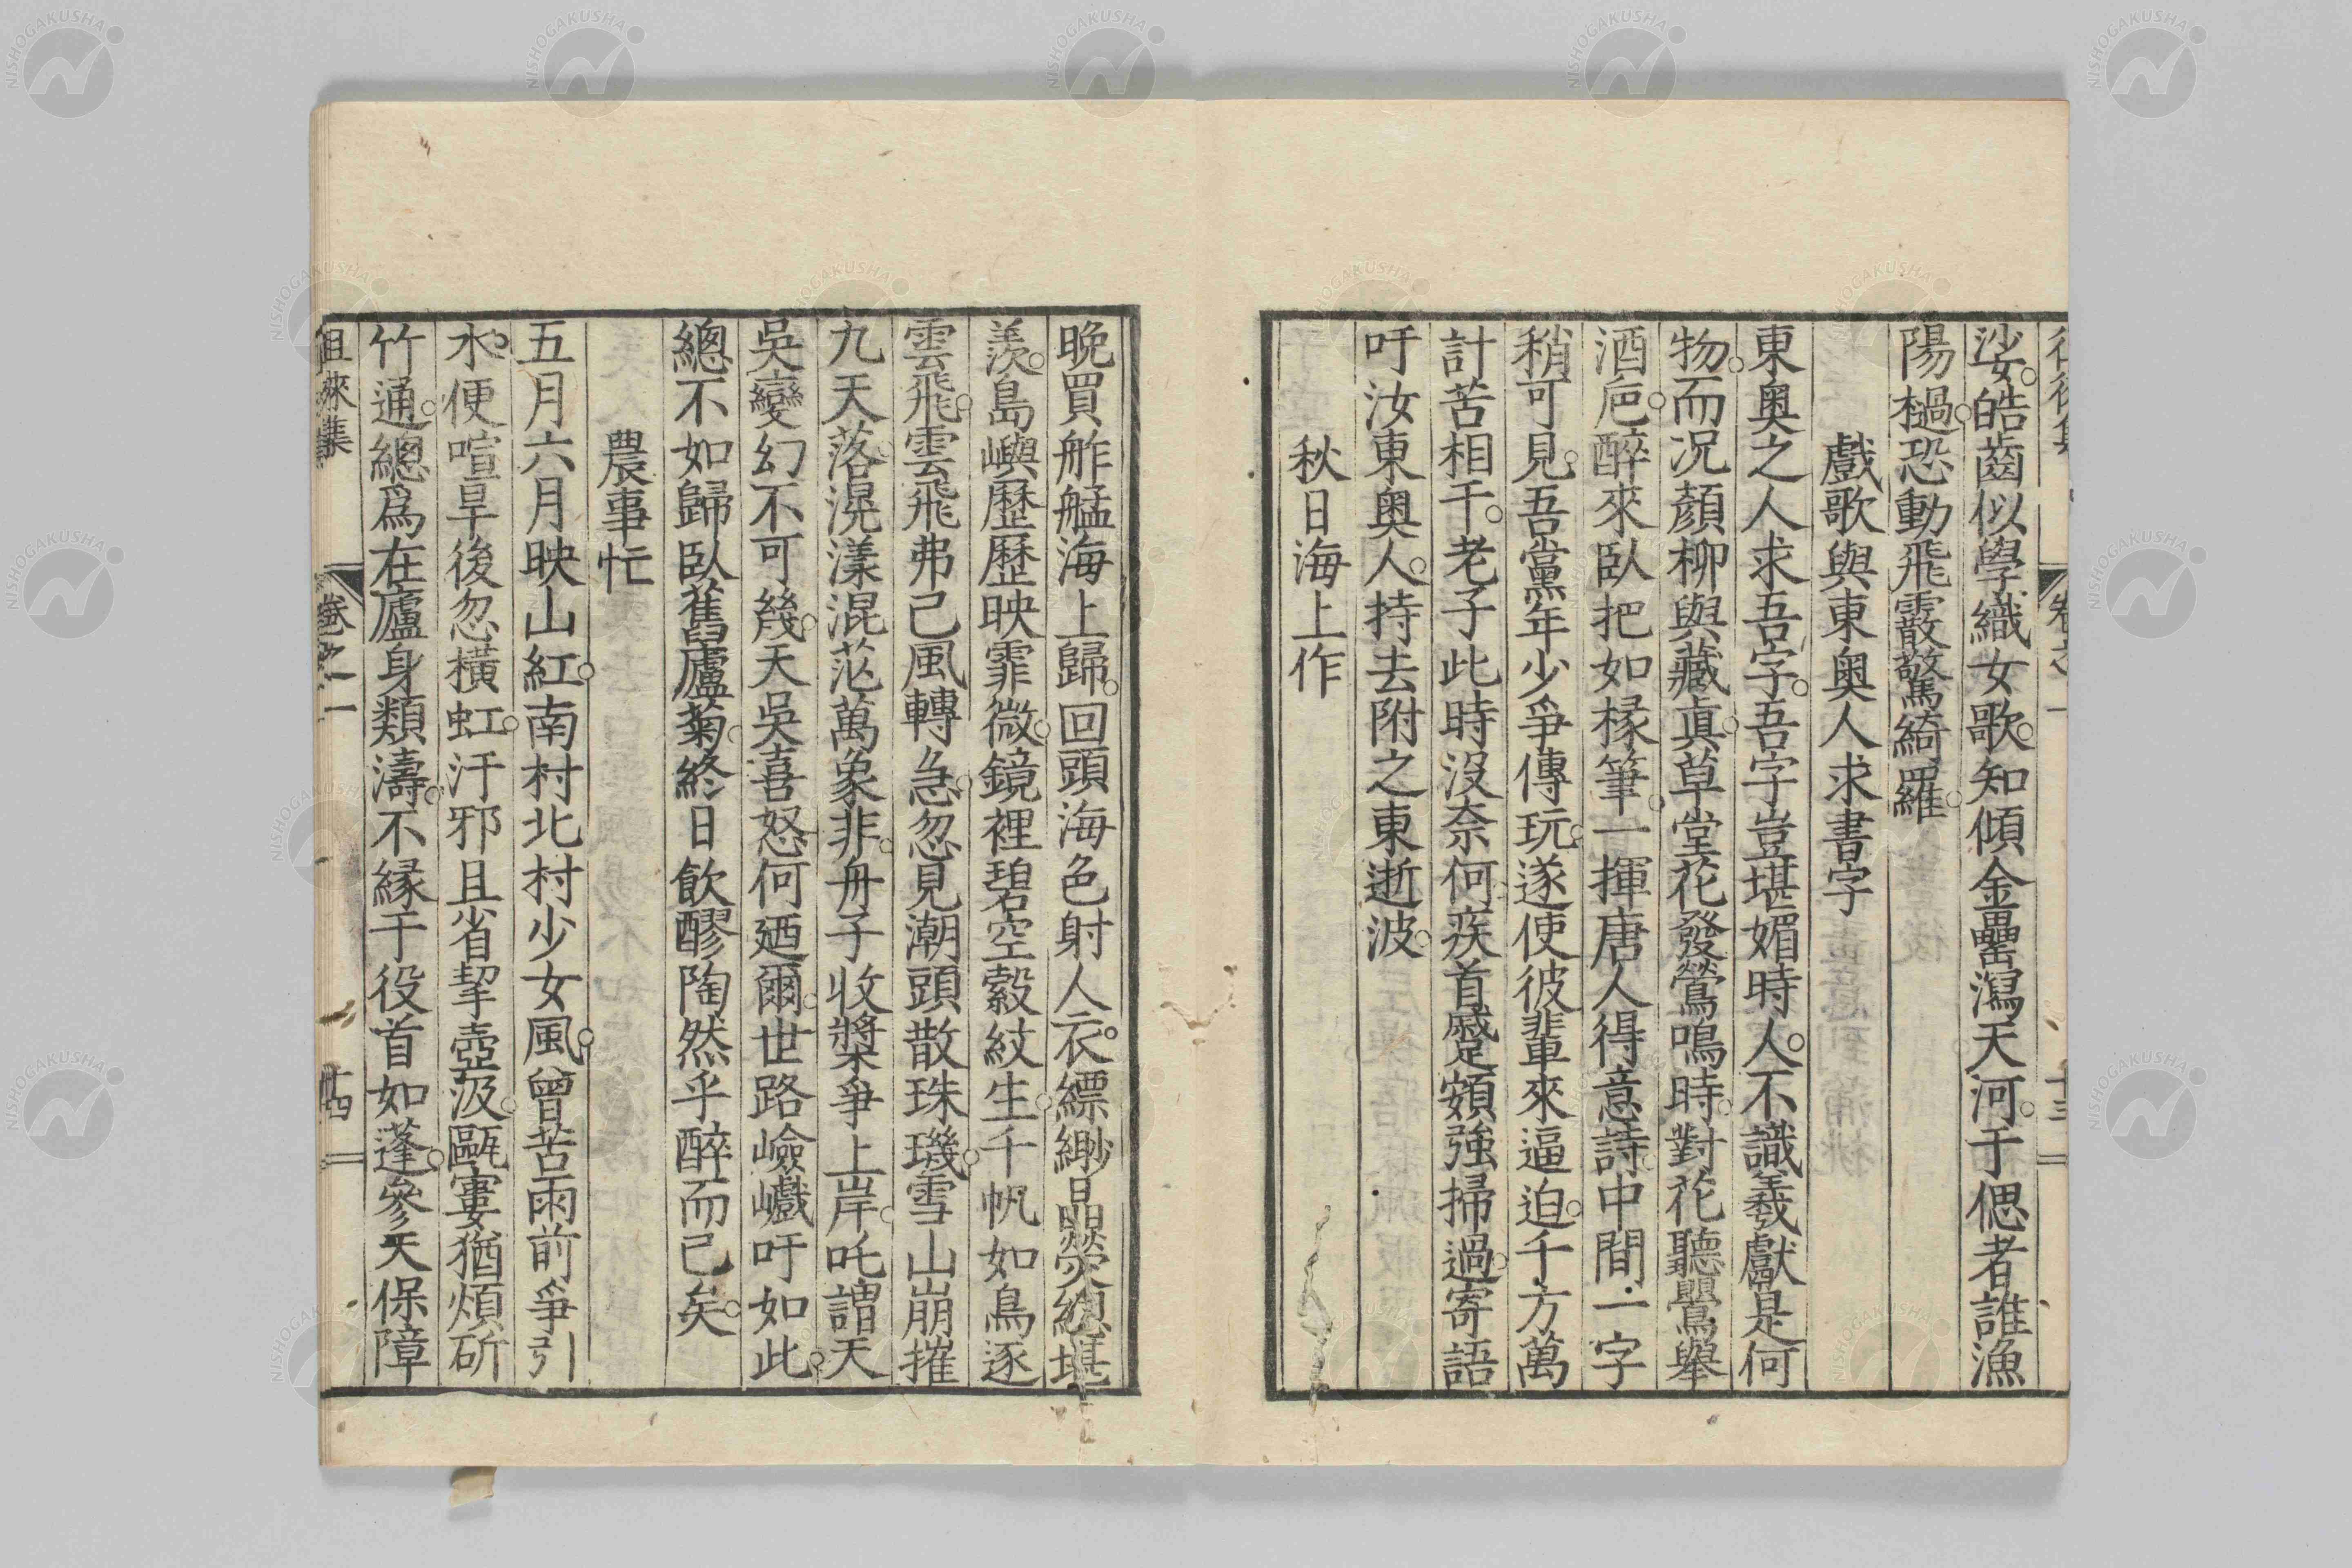 娑皓齒似學織女歌知傾金罍瀉天河于偲者誰漁
陽檛恐動飛霰驚綺羅
戲歌與東奧人求書字
東奧之人求吾字吾字豈堪媚時人不識羲獻是何
物而况顏柳與藏真草堂花發鶯鳴時對花聽鸎舉
酒巵醉來臥把如椽筆一揮唐人得意詩中間一字
稍可見吾黨年少爭傳玩遂使彼輩來逼迫千方萬
計苦相干老子此時沒奈何疾首蹙頞強掃過寄語
吁汝東奧人持去附之東逝波
秋日海上作
晚買舴艋海上歸回頭海色射人衣縹緲晶熒總堪
羨島嶼歷歷映霏微鏡裡碧空縠紋生千帆如鳥逐
雲飛雲飛弗已風轉急忽見潮頭散珠璣雪山崩摧
九天落滉漾混茫萬象非舟子收槳爭上岸吒謂天
吳變幻不可幾天吳喜怒何廼爾世路嶮巇吁如此
總不如歸臥舊廬菊終日飲醪陶然乎醉而已矣
農事忙
五月六月映山紅南村北村少女風曾苦雨前爭引
水便喧旱後忽橫虹汙邪且省挈壺汲甌窶猶煩斫
竹通總爲在廬身類濤不緣于役首如蓬參天保障
徂來集 卷之二 十四
NISHOGAKUSHA